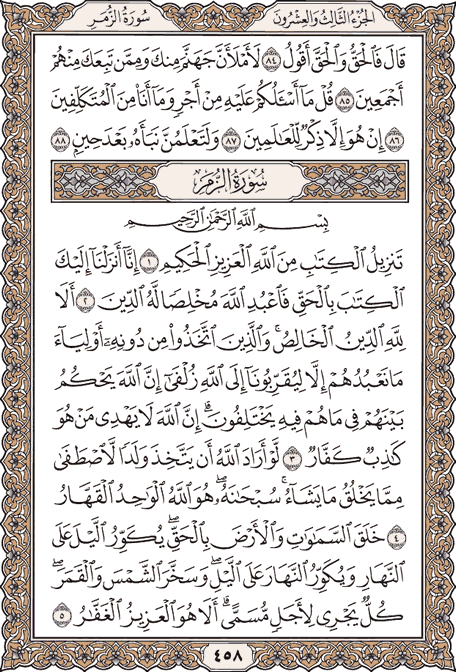 سُورَةُ الزُّمَرِ الجُزْءُ الثَّالِثُ وَالعِشْرُونَ
قَالَ فَالْحَقُّ وَالْحَقَّ أَقُولُ ٨٤ لَأَمْلَأَنَّ جَهَنَّمَ مِنكَ وَمِمَّن تَبِعَكَ مِنْهُمْ
أَجْمَعِينَ ٨٥ قُلْ مَا أَسْـَٔلُكُمْ عَلَيْهِ مِنْ أَجْرٍ وَمَا أَنَا۠ مِنَ الْمُتَكَلِّفِينَ
٨٦ إِنْ هُوَ إِلَّا ذِكْرٌ لِّلْعَالَمِينَ ٨٧ وَلَتَعْلَمُنَّ نَبَأَهُۥ بَعْدَ حِينٍ ٨٨
سُورَةُ الزُّمَرِ
بِسْمِ اللَّهِ الرَّحْمَٰنِ الرَّحِيمِ
تَنزِيلُ الْكِتَٰبِ مِنَ اللَّهِ الْعَزِيزِ الْحَكِيمِ ١ إِنَّا أَنزَلْنَا إِلَيْكَ
الْكِتَٰبَ بِالْحَقِّ فَاعْبُدِ اللَّهَ مُخْلِصًا لَّهُ الدِّينَ ٢ أَلَا
لِلَّهِ الدِّينُ الْخَالِصُ ۚ وَالَّذِينَ اتَّخَذُوا۟ مِن دُونِهِۦٓ أَوْلِيَآءَ
مَا نَعْبُدُهُمْ إِلَّا لِيُقَرِّبُونَآ إِلَى اللَّهِ زُلْفَىٰٓ إِنَّ اللَّهَ يَحْكُمُ
بَيْنَهُمْ فِى مَا هُمْ فِيهِ يَخْتَلِفُونَ ۗ إِنَّ اللَّهَ لَا يَهْدِى مَنْ هُوَ
كَٰذِبٌ كَفَّارٌ ٣ لَّوْ أَرَادَ اللَّهُ أَن يَتَّخِذَ وَلَدًا لَّاصْطَفَىٰ
مِمَّا يَخْلُقُ مَا يَشَآءُ ۚ سُبْحَٰنَهُۥ ۖ هُوَ اللَّهُ الْوَٰحِدُ الْقَهَّارُ
٤ خَلَقَ السَّمَٰوَٰتِ وَالْأَرْضَ بِالْحَقِّ ۖ يُكَوِّرُ الَّيْلَ عَلَى
النَّهَارِ وَيُكَوِّرُ النَّهَارَ عَلَى الَّيْلِ ۖ وَسَخَّرَ الشَّمْسَ وَالْقَمَرَ ۖ
كُلٌّ يَجْرِى لِأَجَلٍ مُّسَمًّى ۗ أَلَا هُوَ الْعَزِيزُ الْغَفَّٰرُ ٥
٤٥٨